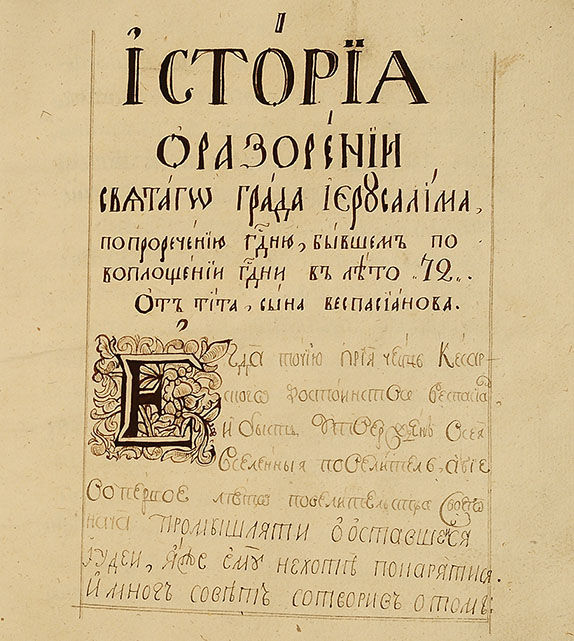 І҆СТО́РЇА
О҆РАЗОРЕ́НЇИ
СВѦТА́ГѠ ГРА́ДА І҆ЕРꙊСАЛІ́МА,
ПОПРОРЕЧЕ́НЇЮ ГДНЮ, БЫ́ВШЕМЪ ПО
ВОПЛОЩЕ́НЇИ ГДНИ ВЪ ЛѢТО „72„.
О҆ТЪ ТІ́ТА, СЫ́НА ВЕСПАСІА́НОВА.
Егда̀ то́чїю прїѧ́ че́сть Ке́сар
ского достоинство Веспасїа
и҆ бы́сть
вселе́нныѧ повели́тель, а҆́бїе
во пе́рвое лѣ́то повели́тельства
промышлѧ́ти о҆ оста́вшейсѧ
і҆удеи, ꙗ҆́же є҆мꙋ̀ нехотѣ̀ покарѧ́тисѧ.
И҆ мно́гъ совѣ́тъ сотвори́въ о то́мъ: